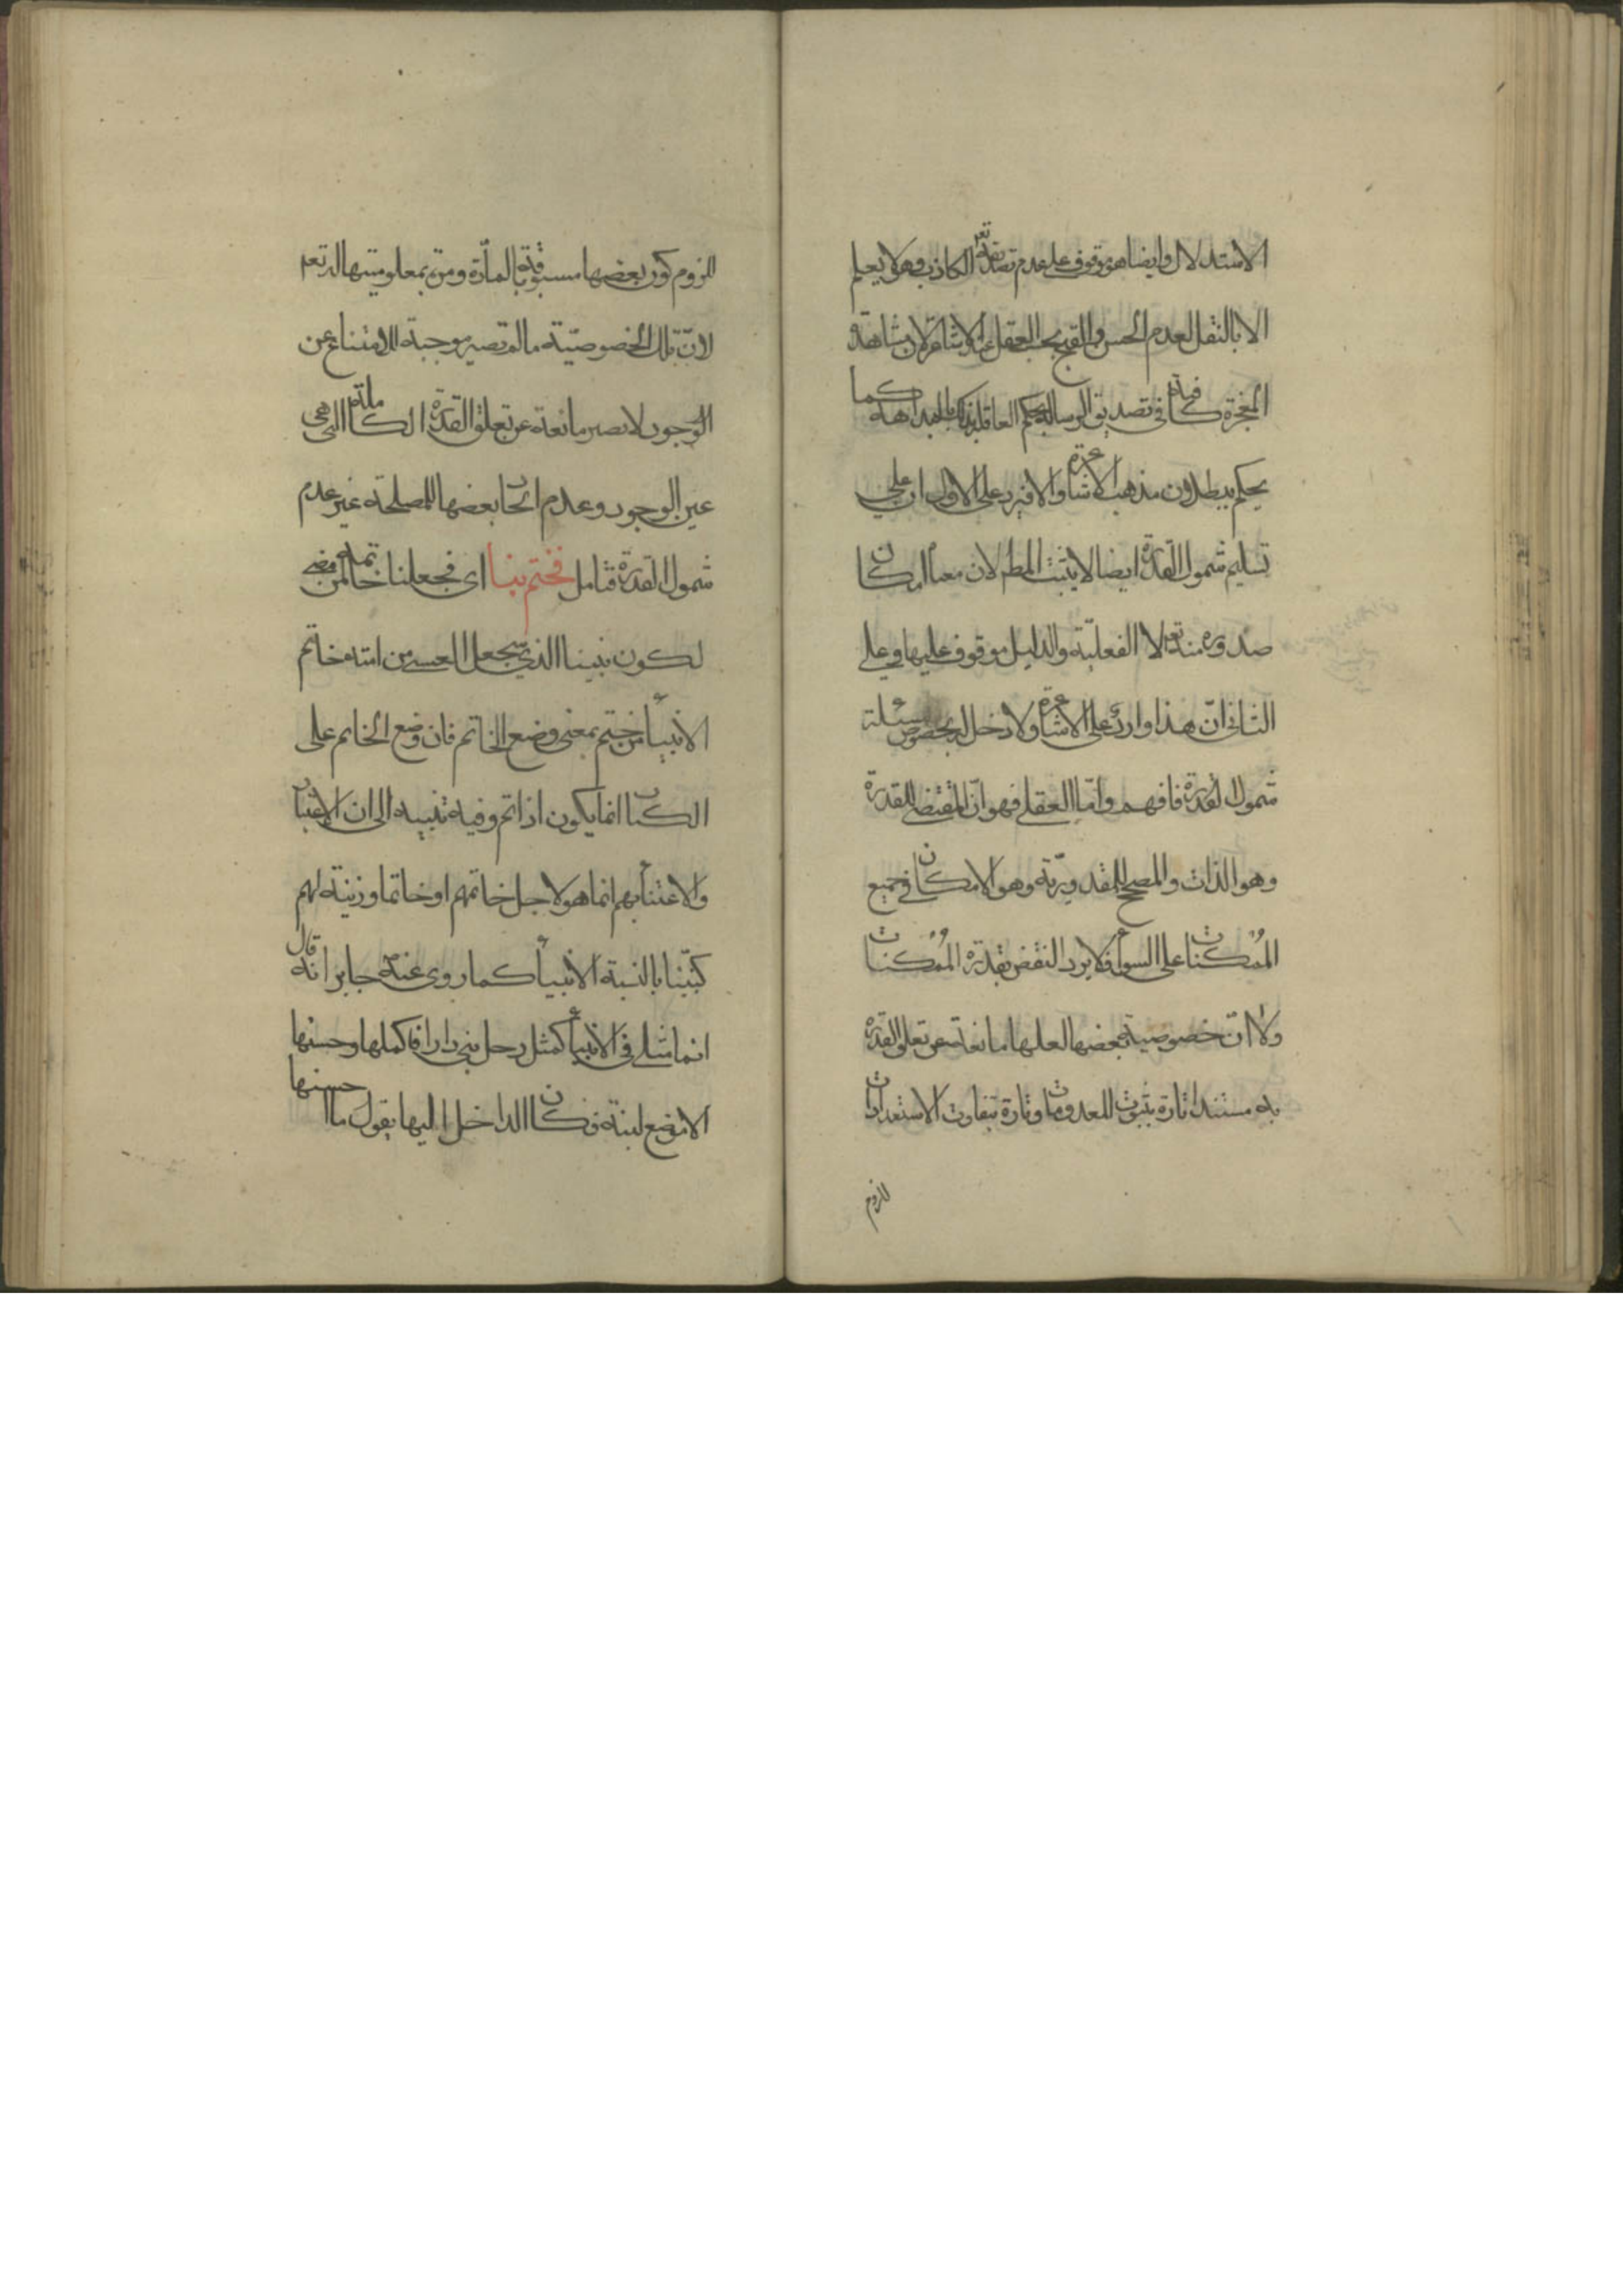 الاستدلال وايضا هو موقوف على عدم تصديقه تعـ الكاذب وهو لا يعلم
الا بالنقل لعدم الحسن والقبح بحسب العقل عند الاشاعرة لان مشاهدة
المعجزة كافية في تصديق الرسالة يحكم العاقل بذلك بالبداهة كما
يحكم ببطلان مذهب الاشاعرة والا فيرد على الاول ان على
تسليم شمول القدرة ايضا لا يثبت المط لان معناه امكان
صدوره منه تعـ لا الفعلية والدليل موقوف عليها وعلى
الثاني انّ هذا وارد على الاشاعرة ولا دخل له بخصوص مسئلة
شمول القدرة فافهم وامّا العقلى فهو انّ المقتضى للقدرة
وهو الذات والمصحح للمقدوريّة وهو الامكان في جميع
الممكنات على السواء فلا يرد النقض بقدرة الممكنات
ولا انّ خصوصية بعضها لعلها مانعة عن تعلق القدرة
به مستندا تارة بثبوت المعدومات وتارة بتفاوت الاستعدادات
للزوم
للزوم كون بعضها مسبوقة بالمادّة ومدة بمعلوميتها له تعـ
لانّ تلك الخصوصيّة ما لم تصير موجبة للامتناع عن
الوجود لا تصير مانعة عن تعلق القدرة الكاملة التي هي
عين الوجود وعدم اتحاد بعضها للمصلحة غير عدم
شمول القدرة فتامل فختم بنا اى فجعلنا خاتمة لمن مضى
لكون نبينا الذي يجعل العسى من امته خاتم
الانبياء من ختم بمعنى وضع الخاتم فان وضع الخاتم على
الكتاب انما يكون اذا تم وفيه تنبيه الى ان الاعتبار
والاعتناء بهم انما هو لاجل خاتمهم او خاتما وزينة لهم
كنبيّنا بالنسبة الانبياء كما روى عنه جابر انه قال
انما مثلى في الانبياء كمثل رجل بنى دارا فاكملها وحسنها
الا موضع لبنة فكان الداخل اليها يقول ما احسنها